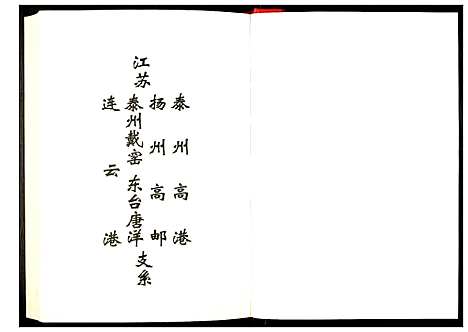 江苏
泰州高港
扬州高邮
泰州戴窑 东台唐洋
连云港
支系